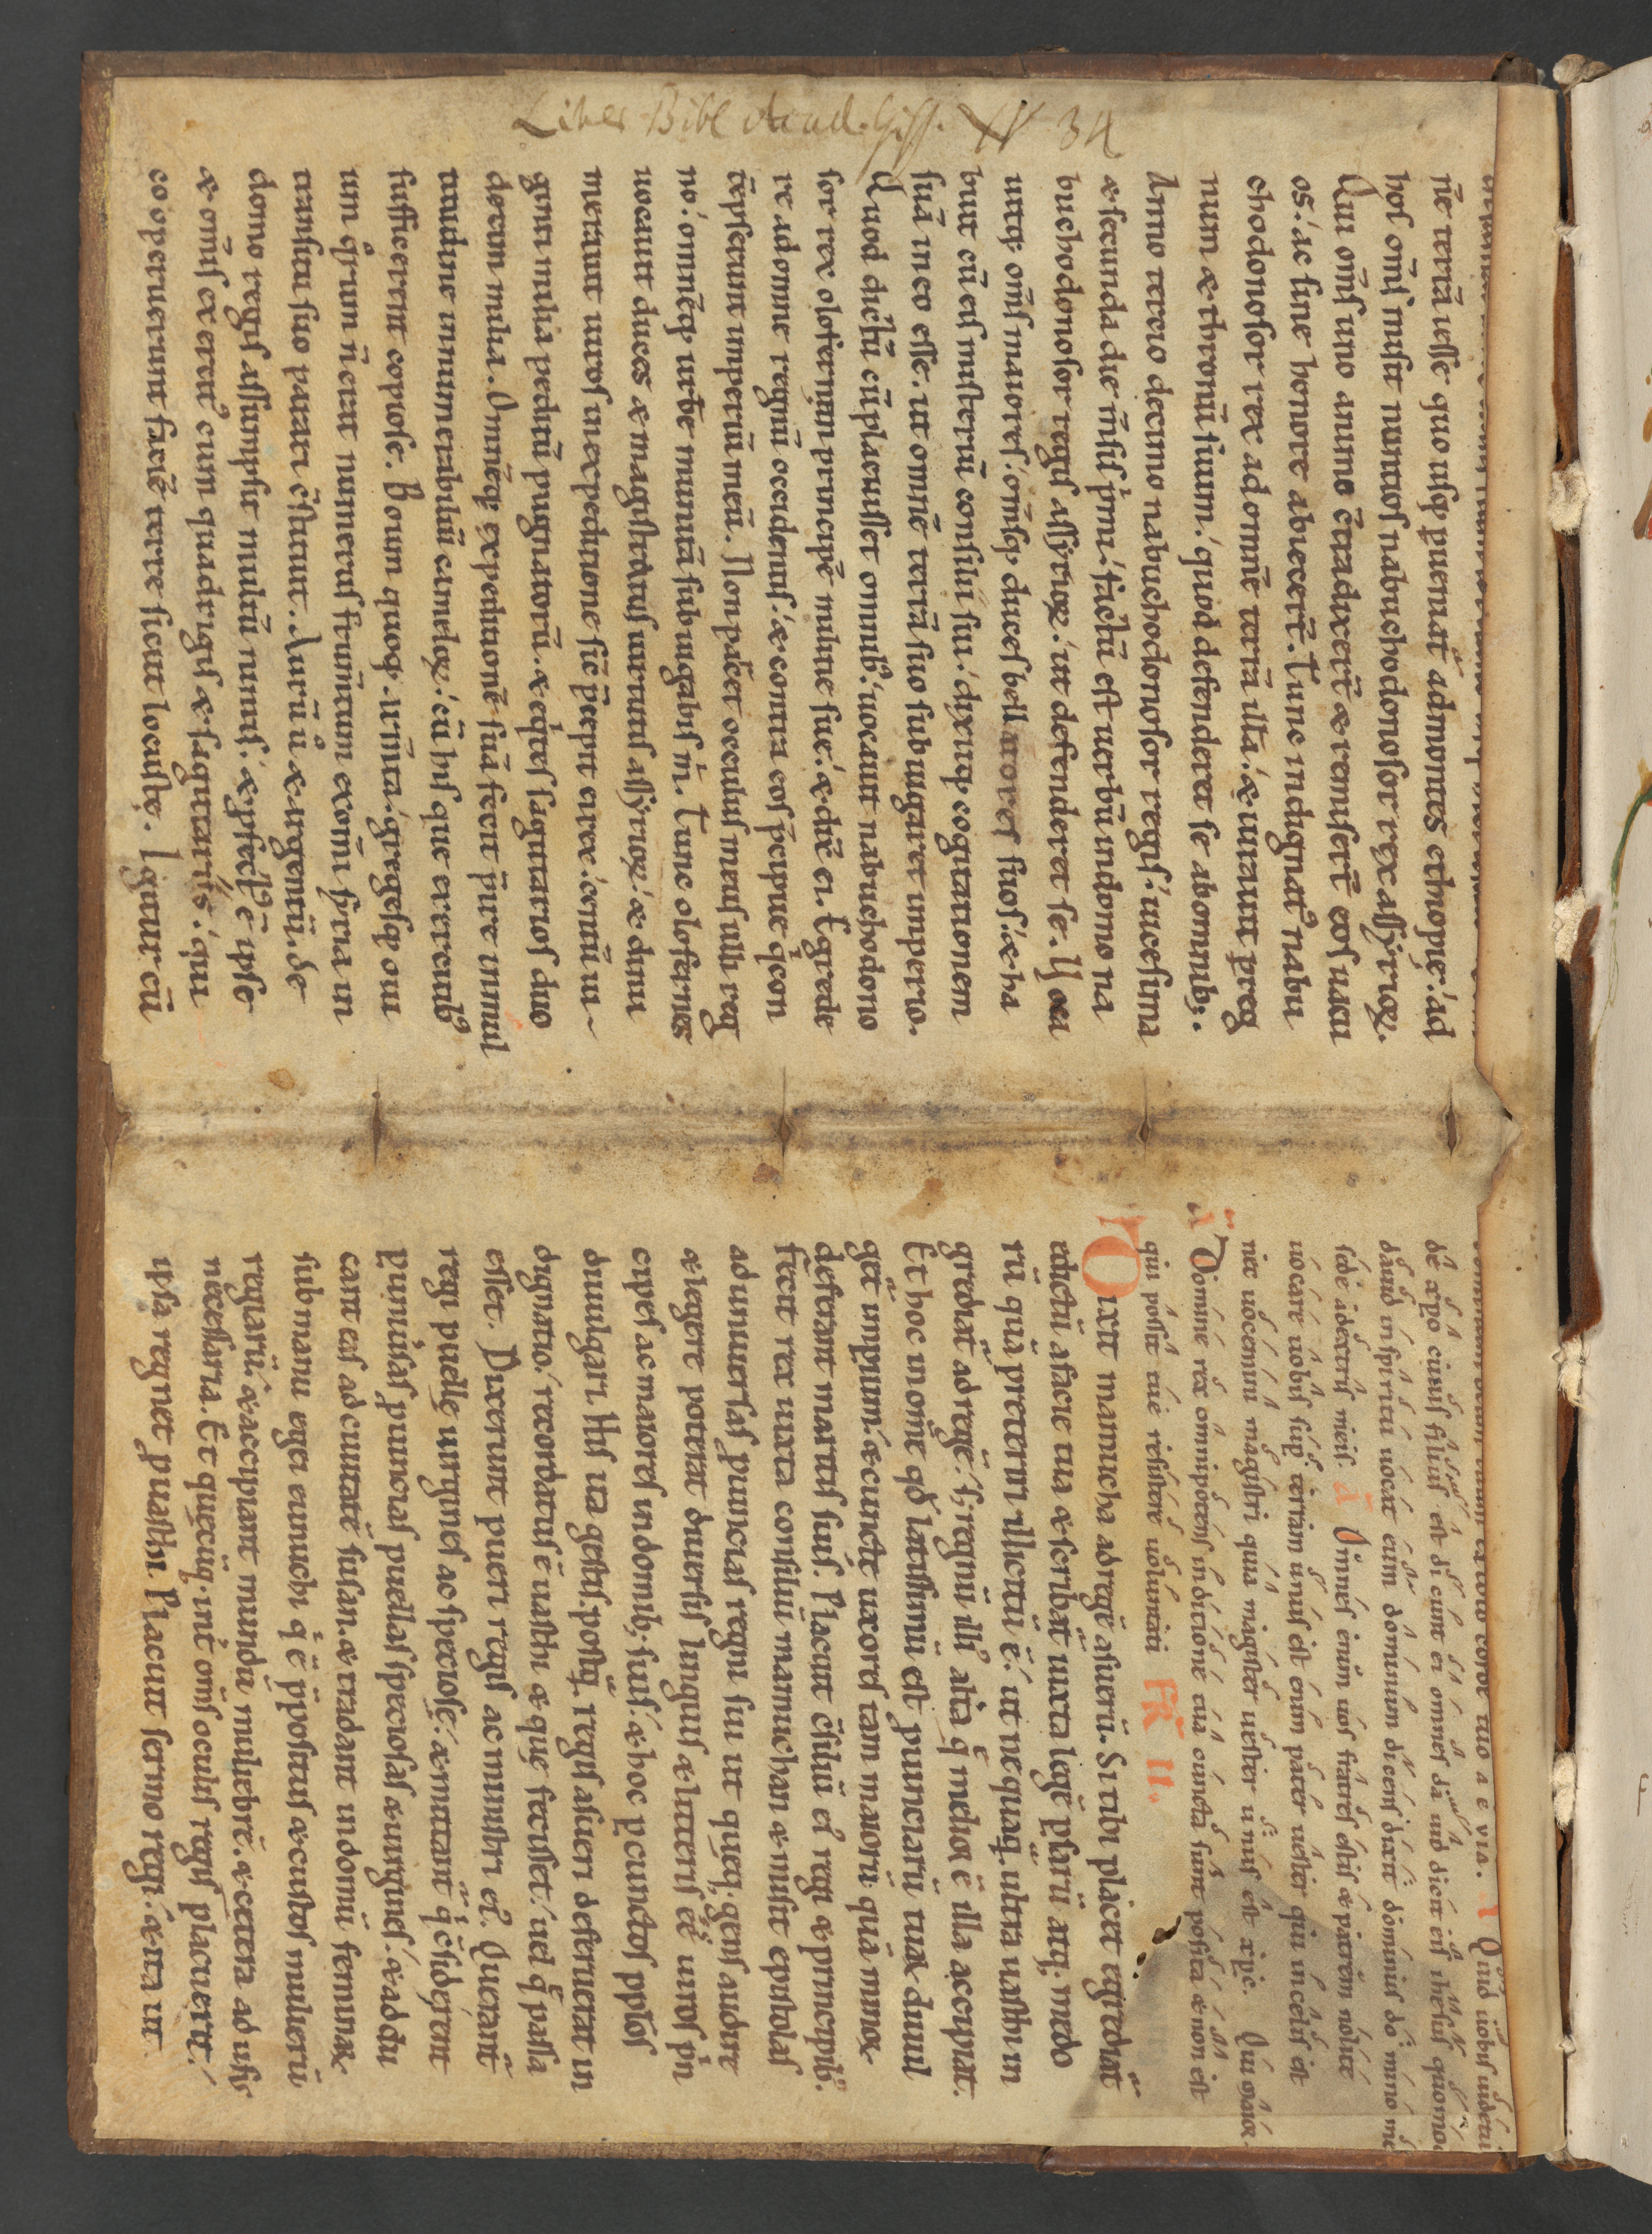 Liber Bibl Acad. Giss.
34
nē terrā ieſſe quo uſq; pueniat̃ ad montes ethiopię.́ ad
hoſ om̄ſ miſit nuntioſ nabuchodonoſor rex aſſyrioꝝ.
Qui om̄ſ uno animo c̄tradixer̄t & remiſer̄t eoſ uacu
oſ.́ ac ſine honore abiecer̄t. Tunc indignat᷒ nabu
chodonoſor rex ad omnē terrā illā.́ & iurauit p reg
num & thronū ſuum.́ quod defenderet ſe ab omnib;.
Anno tercio decimo nabuchodonoſor regiſ.́ uiceſima
& ſecunda die m̄ſiſ p̍mi.́ factū eſt uerbū in domo na
buchodonoſor regiſ aſſyrioꝝ.́ ut defenderet ſe. Voca
uitq; om̄ſ maioreſ.́ om̄ſq; duceſ bellatoreſ ſuoſ.́ & ha
buit cū eiſ miſteriū conſilii ſui.́ dixitq; cogitationem
ſuā in eo eſſe. ut omnē terrā ſuo ſubiugaret imperio.
Quod dictū cū placuiſſet omnib᷒.́ uocauit nabuchodono
ſor rex olofernem principē militie ſue.́ & dix̄ ei. Egrede
re ad omne regnū occidentiſ.́ & contra eoſ p̄cipue q̍ con
tēpſerunt imperiū meū. Non parcet oculuſ meuſ ulli reg
no.́ omnēq; urbē munitā ſubiugabiſ m̍. Tunc olofernes
uocauit duces & magiſtratuſ uirtutiſ aſſyrioꝝ.́ & dinu
merauit uiroſ in expeditione ſic̄ p̄cepit ei rex.́ centū ui
ginti milia peditū pugnatorū.́ & equiteſ ſagittarioſ duo
decim milia. Omnēq; expeditionē ſuā fecit p̄ire in mul
titudine innumerabiliū cameloꝝ.́ cū hiſ que exercitib᷒
ſufficerent copioſe. Boum quoq; arm̄ta.́ gregeſq; oui
um q̊rum n̄ erat numeruſ frum̄tum ex om̄i ſyria in
tranſitu ſuo parari c̄ſtituit. Aurū ů & argentū. de
domo regiſ aſſumpſit multū nimiſ.́ & pfect᷒ ē ipſe
& om̄iſ exercit᷒ cum quadrigiſ & ſagittariis.́ qui
cooperuerunt faciē terre ſicut locuſtę. Igitur cū
corde tuo a e v i a . Quid uobiſ uidetur
de xp̄o cuiuſ filiuſ eſt dicunt ei omneſ dauid dicit eiſ iheſuſ quomo
dauid in ſpiritu uocat eum dominum dicenſ dixit dominuſ do mino me
ſede a dextriſ meiſ. Omneſ enim uoſ fratreſ eſtiſ & patrem nolite
uocare uobiſ ſup terram unuſ eſt enim pater ueſter qui in celiſ eſt
nec uocemini magiſtri quia magiſter ueſter unuſ eſt xp̄c.
Domine rex omnipotenſ in dicione tua cuncta ſunt poſita & non eſt
qui poſſit tue reſiſtere uoluntati FR II.
Dixit mamucha ad regē aſuerū. Si tibi placet egrediat̃
edictū a facie tua & ſcribat̃ iuxta legē pſarū atq; medo
rū quā preteriri illicitū ē.́ ut nequaq̄. ultra uaſthi in
grediat̃ ad regē.́ ſ; regnū illi᷒ altera q̄ melior ē illa accipiat.
Et hoc in om̄e qd̄ latiſſimū eſt puinciarū tuaꝝ diuul
get̃ imperium.́ & cuncte uxoreſ tam maiorū quā minoꝝ
deferant maritiſ ſuiſ. Placuit c̄ſiliū ei᷒ regi & principib᷒.
Fecit rex iuxta conſiliū mamuchan & miſit epiſtolaſ
ad uniuerſaſ puinciaſ regni ſui ut queq; genſ audire
& legere poterat diuerſiſ linguiſ & litteriſ eē uiroſ p̍n
cipeſ ac maioreſ in domib; ſuiſ.́ & hoc p cunctoſ pp̄loſ
diuulgari. Hiſ ita geſtiſ. poſtq̄. regiſ aſueri deferuerat in
dignatio.́ recordatuſ ē uaſthi & que feciſſet.́ uel q̄ paſſa
eſſet. Dixerunt pueri regiſ ac miniſtri ei᷒. Querant̃
regi puelle uirgineſ ac ſpecioſe.́ & mittant̃ q̍ c̄ſiderent
p uniuerſaſ puinciaſ puellaſ ſpecioſaſ & uirgineſ.́ & addu
cant eaſ ad ciuitatē ſuſan. & tradant in domū feminaꝝ
ſub manu egei eunuchi q̍ ē p̄poſituſ & cuſtoſ mulierū
regiarū.́ & accipiant mundū muliebrē.́ & cetera ad uſuſ
neceſſaria. Et quecūq; int̃ om̄ſ oculiſ regiſ placuerit.́
ipſa regnet p uaſthi. Placuit ſermo regi.́ & ita ut